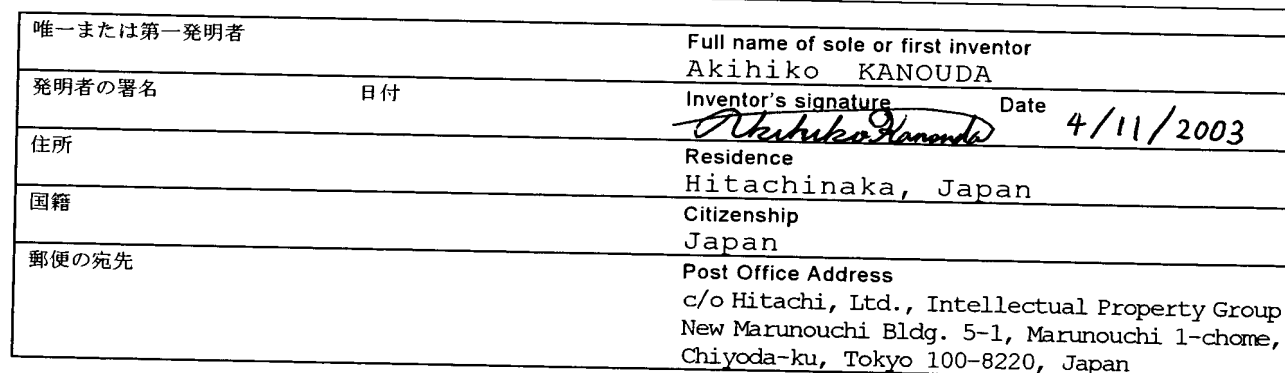 唯一または第一発明者
Full name of sole or first inventor
Akihiko KANOUDA
発明者の署名 日付
Inventor's signature Date
Akihiko Kanouda 4/11/2003
住所
Residence
Hitachinaka, Japan
国籍
Citizenship
Japan
郵便の宛先
Post Office Address
c/o Hitachi, Ltd., Intellectual Property Group
New Marunouchi Bldg. 5-1, Marunouchi 1-chome,
Chiyoda-ku, Tokyo 100-8220, Japan